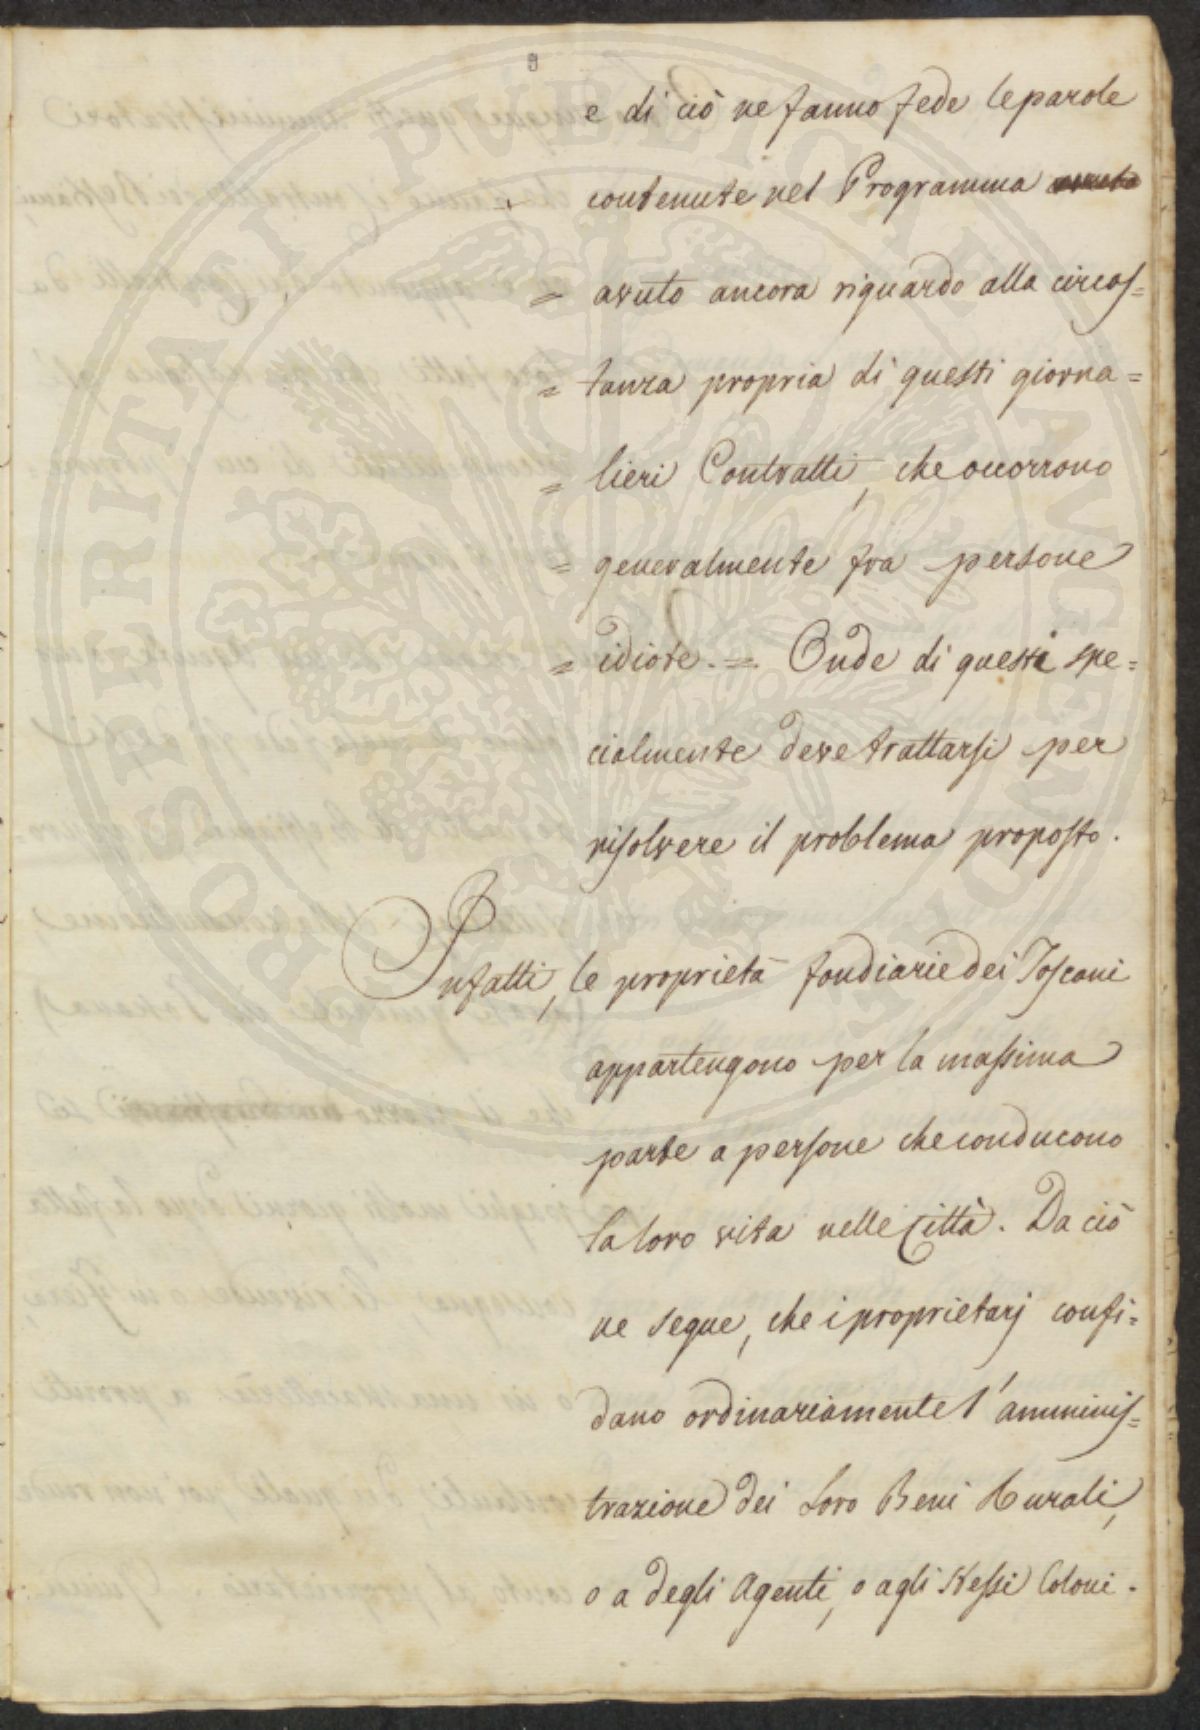 e di ciò ne fanno fede le parole
contenute nel Programma
= avuto ancora riguardo alla circos=
= tanza propria di questi giorna=
= lieri Contratti, che occorrono
= generalmente fra persone
= idiote. = Onde di questi spe=
cialmente deve trattarsi per
risolvere il problema proposto.
Infatti, le proprietà fondiarie dei Toscani
appartengono per la massima
parte a persone che conducono
la loro vita nelle Città. Da ciò
ne segue, che i proprietarj confi=
dano ordinariamente l'amminis=
trazione dei Loro Beni Rurali,
o a degli Agenti, o agli stessi Coloni.
PROSPERITATI PUBLICAE AUGENDAE